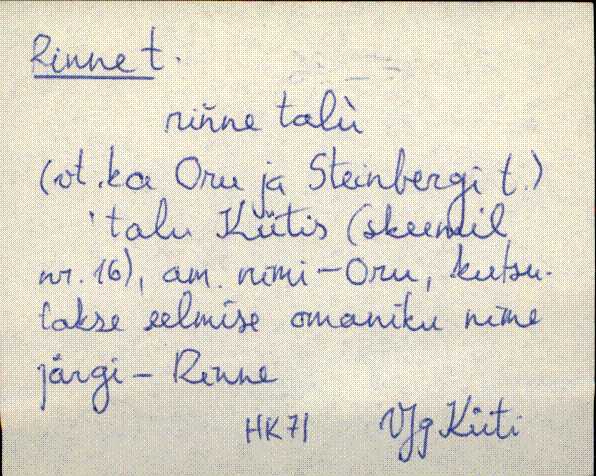 Rinne t.
riñne talù
(vt. ka Oru ja Steinbergi t.)
'talu Kütis (skeemil
nr. 16), am. nimi - Oru, kutsu-
takse eelmise omaniku nime
järgi - Rinne
HK71 VJg Küti